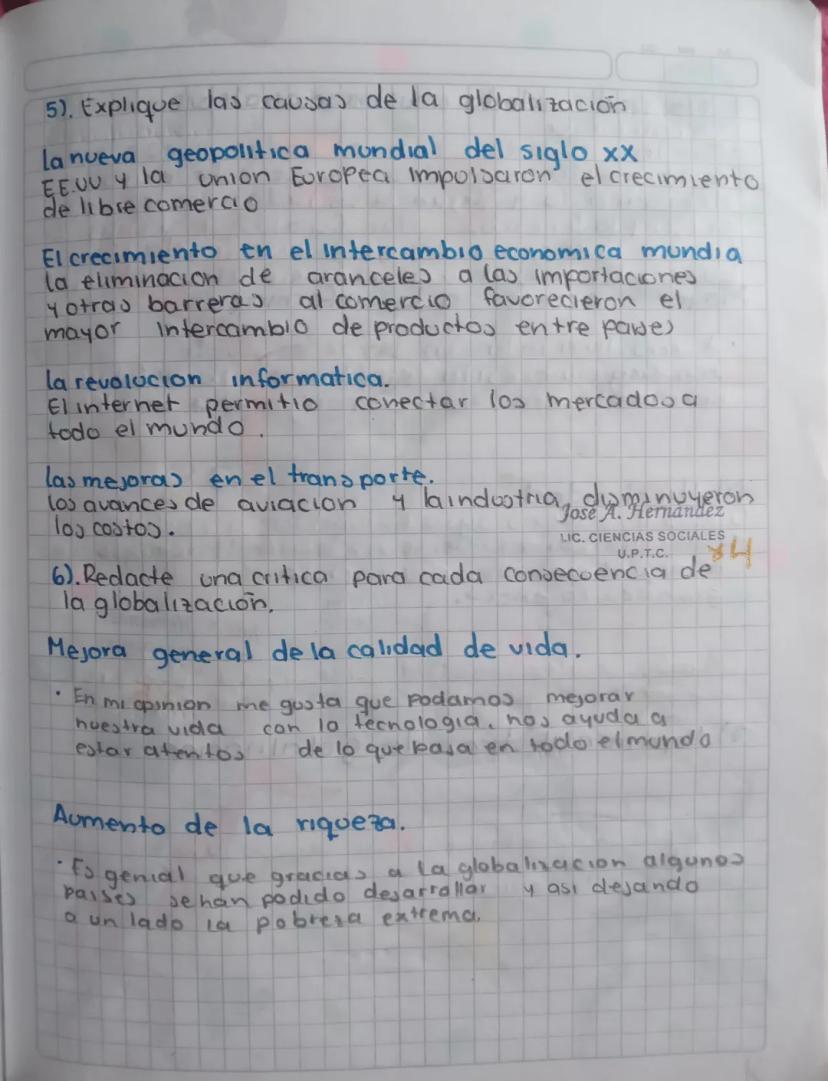 5). Explique las causas de la globalización
la nueva geopolitica mundial del siglo xx
EE.UU y la union Europea impulsaron el crecimiento
de libre comercio
El crecimiento en el intercambio economica mundia
la eliminacion de aranceles a las importaciones
y otras barreras al comercio favorecieron el
mayor intercambio de productos entre paises
la revolucion informatica.
El internet permitio conectar los mercados a
todo el mundo.
las mejoras en el transporte.
los avances de aviacion y la industria, disminuyeron
los costos.
José A. Hernández
LIC. CIENCIAS SOCIALES
U.P.T.C.
6). Redacte una critica para cada consecuencia de
la globalización.
Mejora general de la calidad de vida.
· En mi opinion me gusta que podamos mejorar
nuestra vida con la tecnologia. nos ayuda a
estar atentos de lo que pasa en todo el mundo
Aumento de la riqueza.
· Es genial que gracias a la globalizacion algunos
paises se han podido desarrollar y asi dejando
a un lado la pobreza extrema.